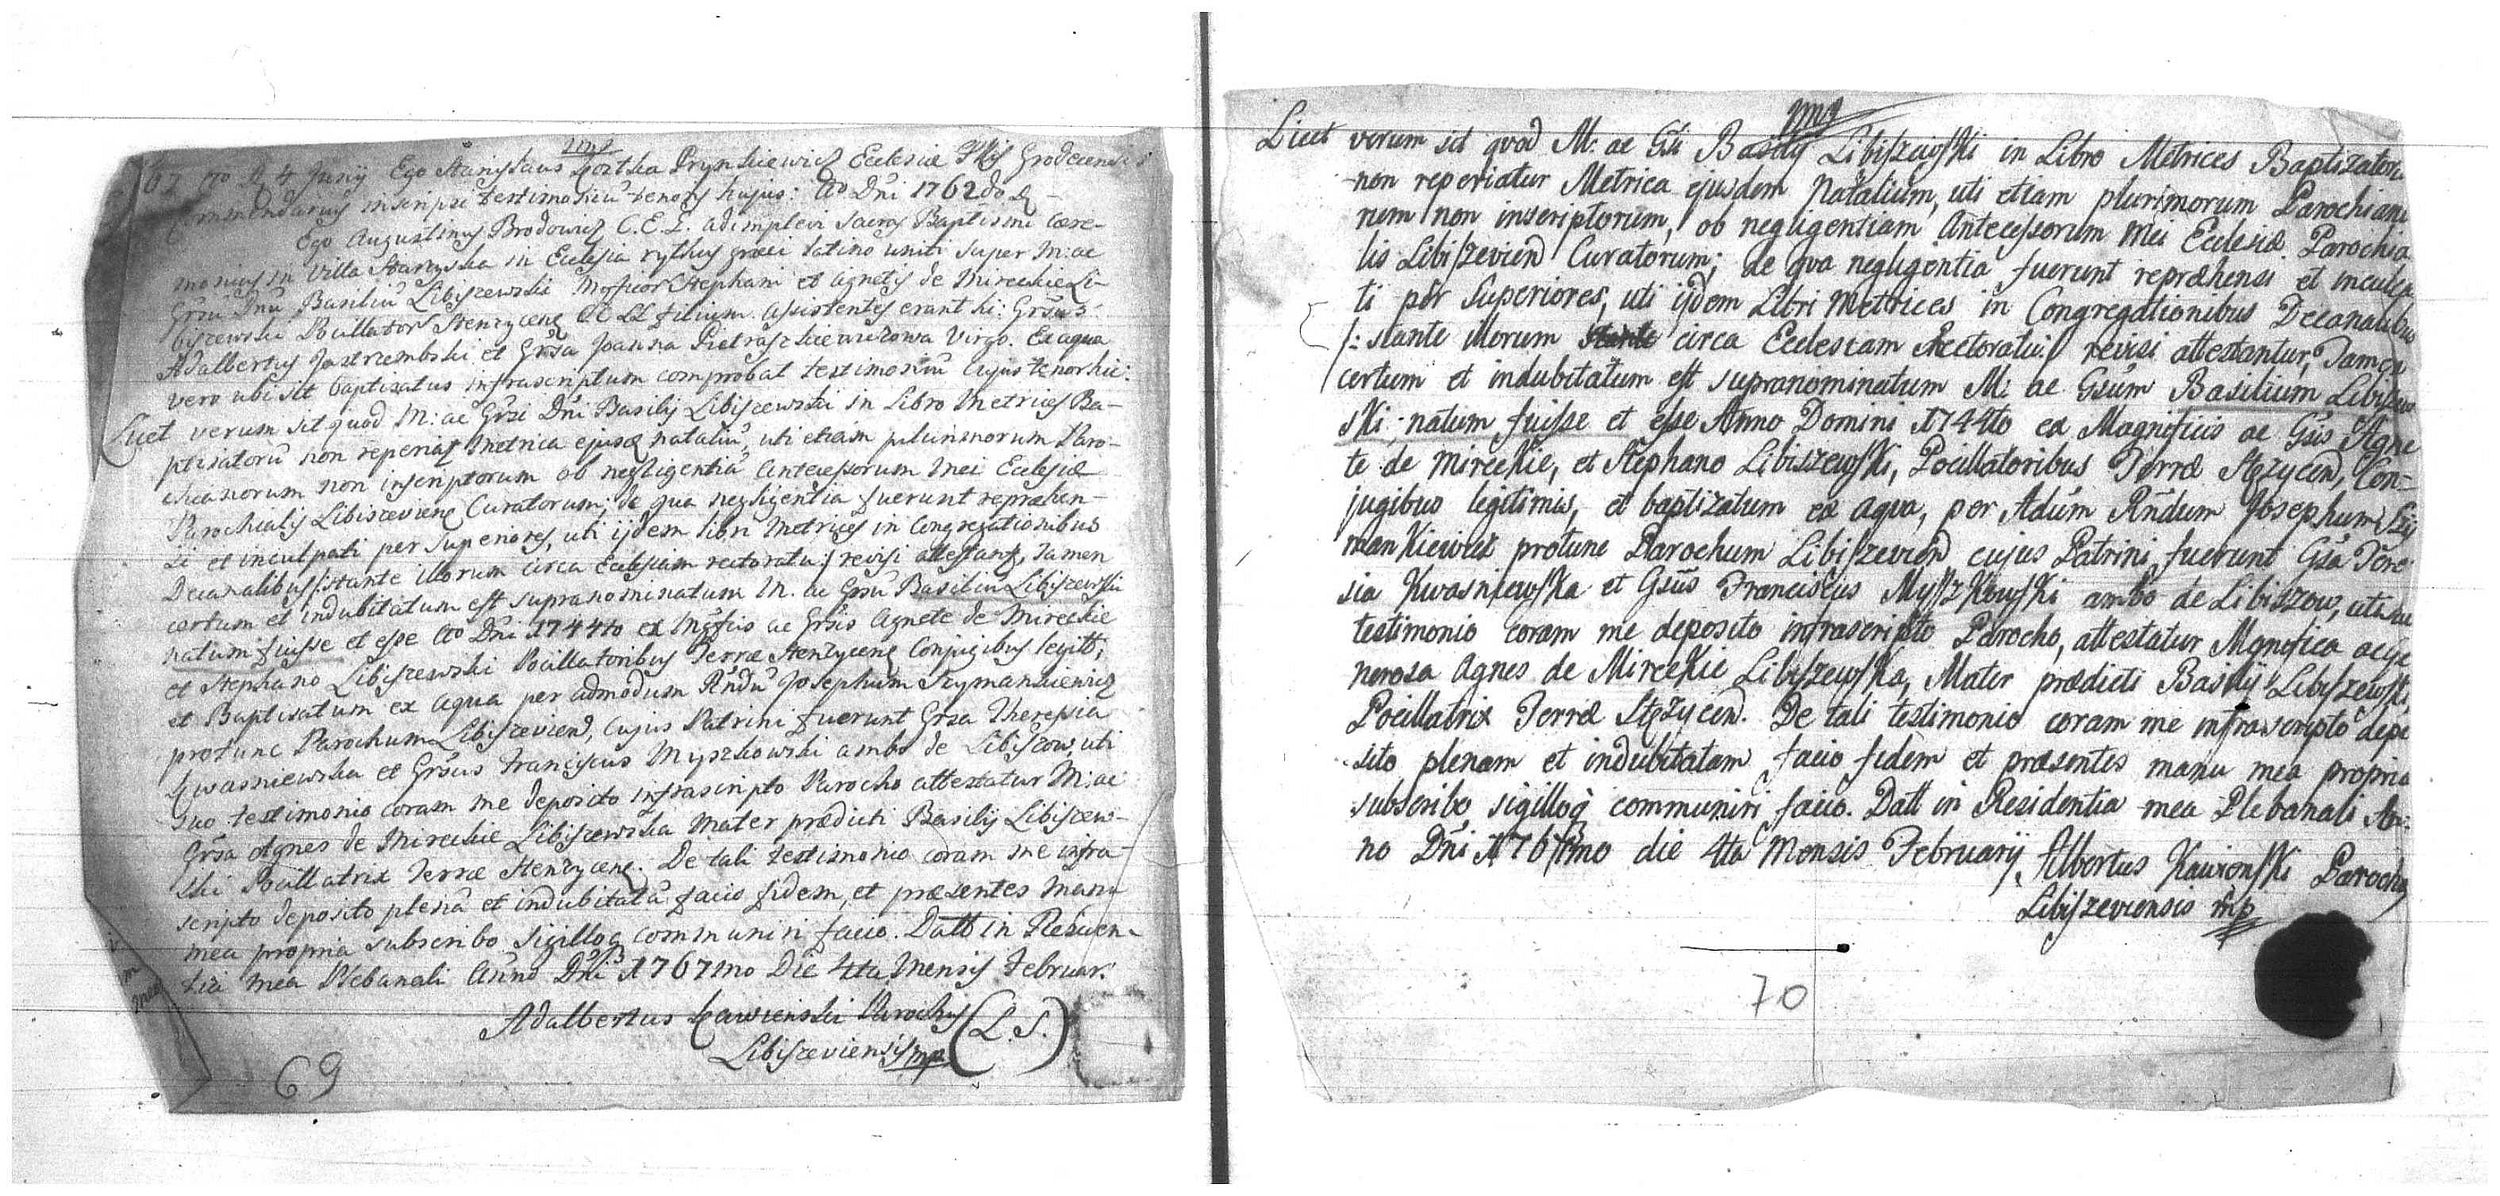 1767
67 mo D. 4 Junij Ego Stanislaus Kostka Prynkiewicz Ecclesiæ Plis Grodecensis
Commendarius inscripsi testimoniu tenoris hujus: Ao Dni 1762do D.
Ego Augustinus Brodowicz C.E.L. adimplevi sacras Baptismi Cære-
monias in Villa Starzyska in Ecclesia rythus græci latino uniti super M: ac
Grsu Dnu Basiliu Libiszewski Mgficor Stephani et Agnetis de Mireckie Li-
biszewski Pocillator Stenzycens CC LL filium. Assistentes erant hi: Grsus
Adalbertus Jastrzembski et Grsa Joanna Pietraszkiewiczowa Virgo. Ex aqua
vero ubi sit baptisatus infrascriptum comprobat testimoniu cujus tenor hic:
Licet verum sit quod M: ac Grsi Dni Basilij Libiszewski in Libro Metrices Ba-
ptisatoru non reperiat Metrica ejusd nataliu, uti etiam plurimorum Paro-
chianorum non inscriptorum ob negligentia Antecessorum Mei Ecclesiæ
Parochialis Libiszeviens Curatorum; de qua negligentia fuerunt repræhen-
si et inculpati per Superiores, uti ijdem libri Metrices in Congregationibus
Decanalibus /: stante illorum circa Ecclesiam rectoratu :/ revisi attestant, tamen
certum et indubitatum est supranominatum M. ac Grsu Basiliu Libiszewski
natum fuisse et esse Ao Dni 1744to ex Mgficis ac Grsis Agnete de Mireckie
et Stephano Libiszewski Pocillatoribus Terræ Stenzycens Conjugibus legitt;
et Baptisatum ex aqua per admodum Rndu Josephum Szymankiewicz
protunc Parochum Libiszeviens, cujus Patrini fuerunt Grsa Theresia
Kwasniewska et Grsus Franciscus Myszkowski ambo de Libiszow, uti
suo testimonio coram me deposito infrascripto Parocho attestatur M: ac
Grsa Agnes de Mireckie Libiszewska Mater prædicti Basilij Libiszew-
ski Pocillatrix Terræ Stenzycens. De tali testimonio coram me infra-
scripto deposito plena et indubitata facio fidem, et præsentes manu
mea propria subscribo, sigilloq communiri facio. Datt in Residen-
tia mea Plebanali Anno Dni 1767mo Die 4ta Mensis Februar:
Adalbertus Kawienski Parochus (L.S.)
Libiszeviensis mp
69
Licet verum sit quod M: ac Gsi Basilij Libiszewski in Libro Metrices Baptizatoru
non reperiatur Metrica ejusdem Natalium, uti etiam plurimorum Parochiano
rum non inscriptorum, ob negligentiam Antecessorum Mei Ecclesiæ Parochia
lis Libiszevien Curatorum; de qva negligentia fuerunt repræhensi et inculpa
ti per Superiores, uti ijdem Libri Metrices in Congregationibus Decanalibus
/: stante illorum circa Ecclesiam Rectoratu :/ revisi attestantur, Tamen
certum et indubitatum est supranominatum M: ac Gsum Basilium Libiszew
ski; natum fuisse et esse Anno Domini 1744to ex Magnificis ac Gsis Agne
te de Mireckie, et Stephano Libiszewski, Pocillatoribus Terræ Stęzycen, Con-
jugibus legitimis, et baptizatum ex aqva, per Adum Rndum Josephum Szy
mankiewicz protunc Parochum Libiszevien cujus Patrini fuerunt Gsa Tere
sia Kwasniewska et Gsus Franciscus Myszkowski ambo de Libiszow, uti suo
testimonio coram me deposito infrascripto Parocho, attestatur Mgnifica ac Ge
nerosa Agnes de Mireckie Libiszewska, Mater prædicti Basilij Libiszewski,
Pocillatrix Terræ Stęzycen. De tali testimonio coram me infrascripto depo
sito plenam et indubitatam facio fidem et præsentes manu mea propria
subscribo sigilloq communiri facio. Datt in Residentia mea Plebanali An:
no Dni 1767mo die 4ta Mensis Februarij Albertus Kawienski Parochus
Libiszeviensis mp
70